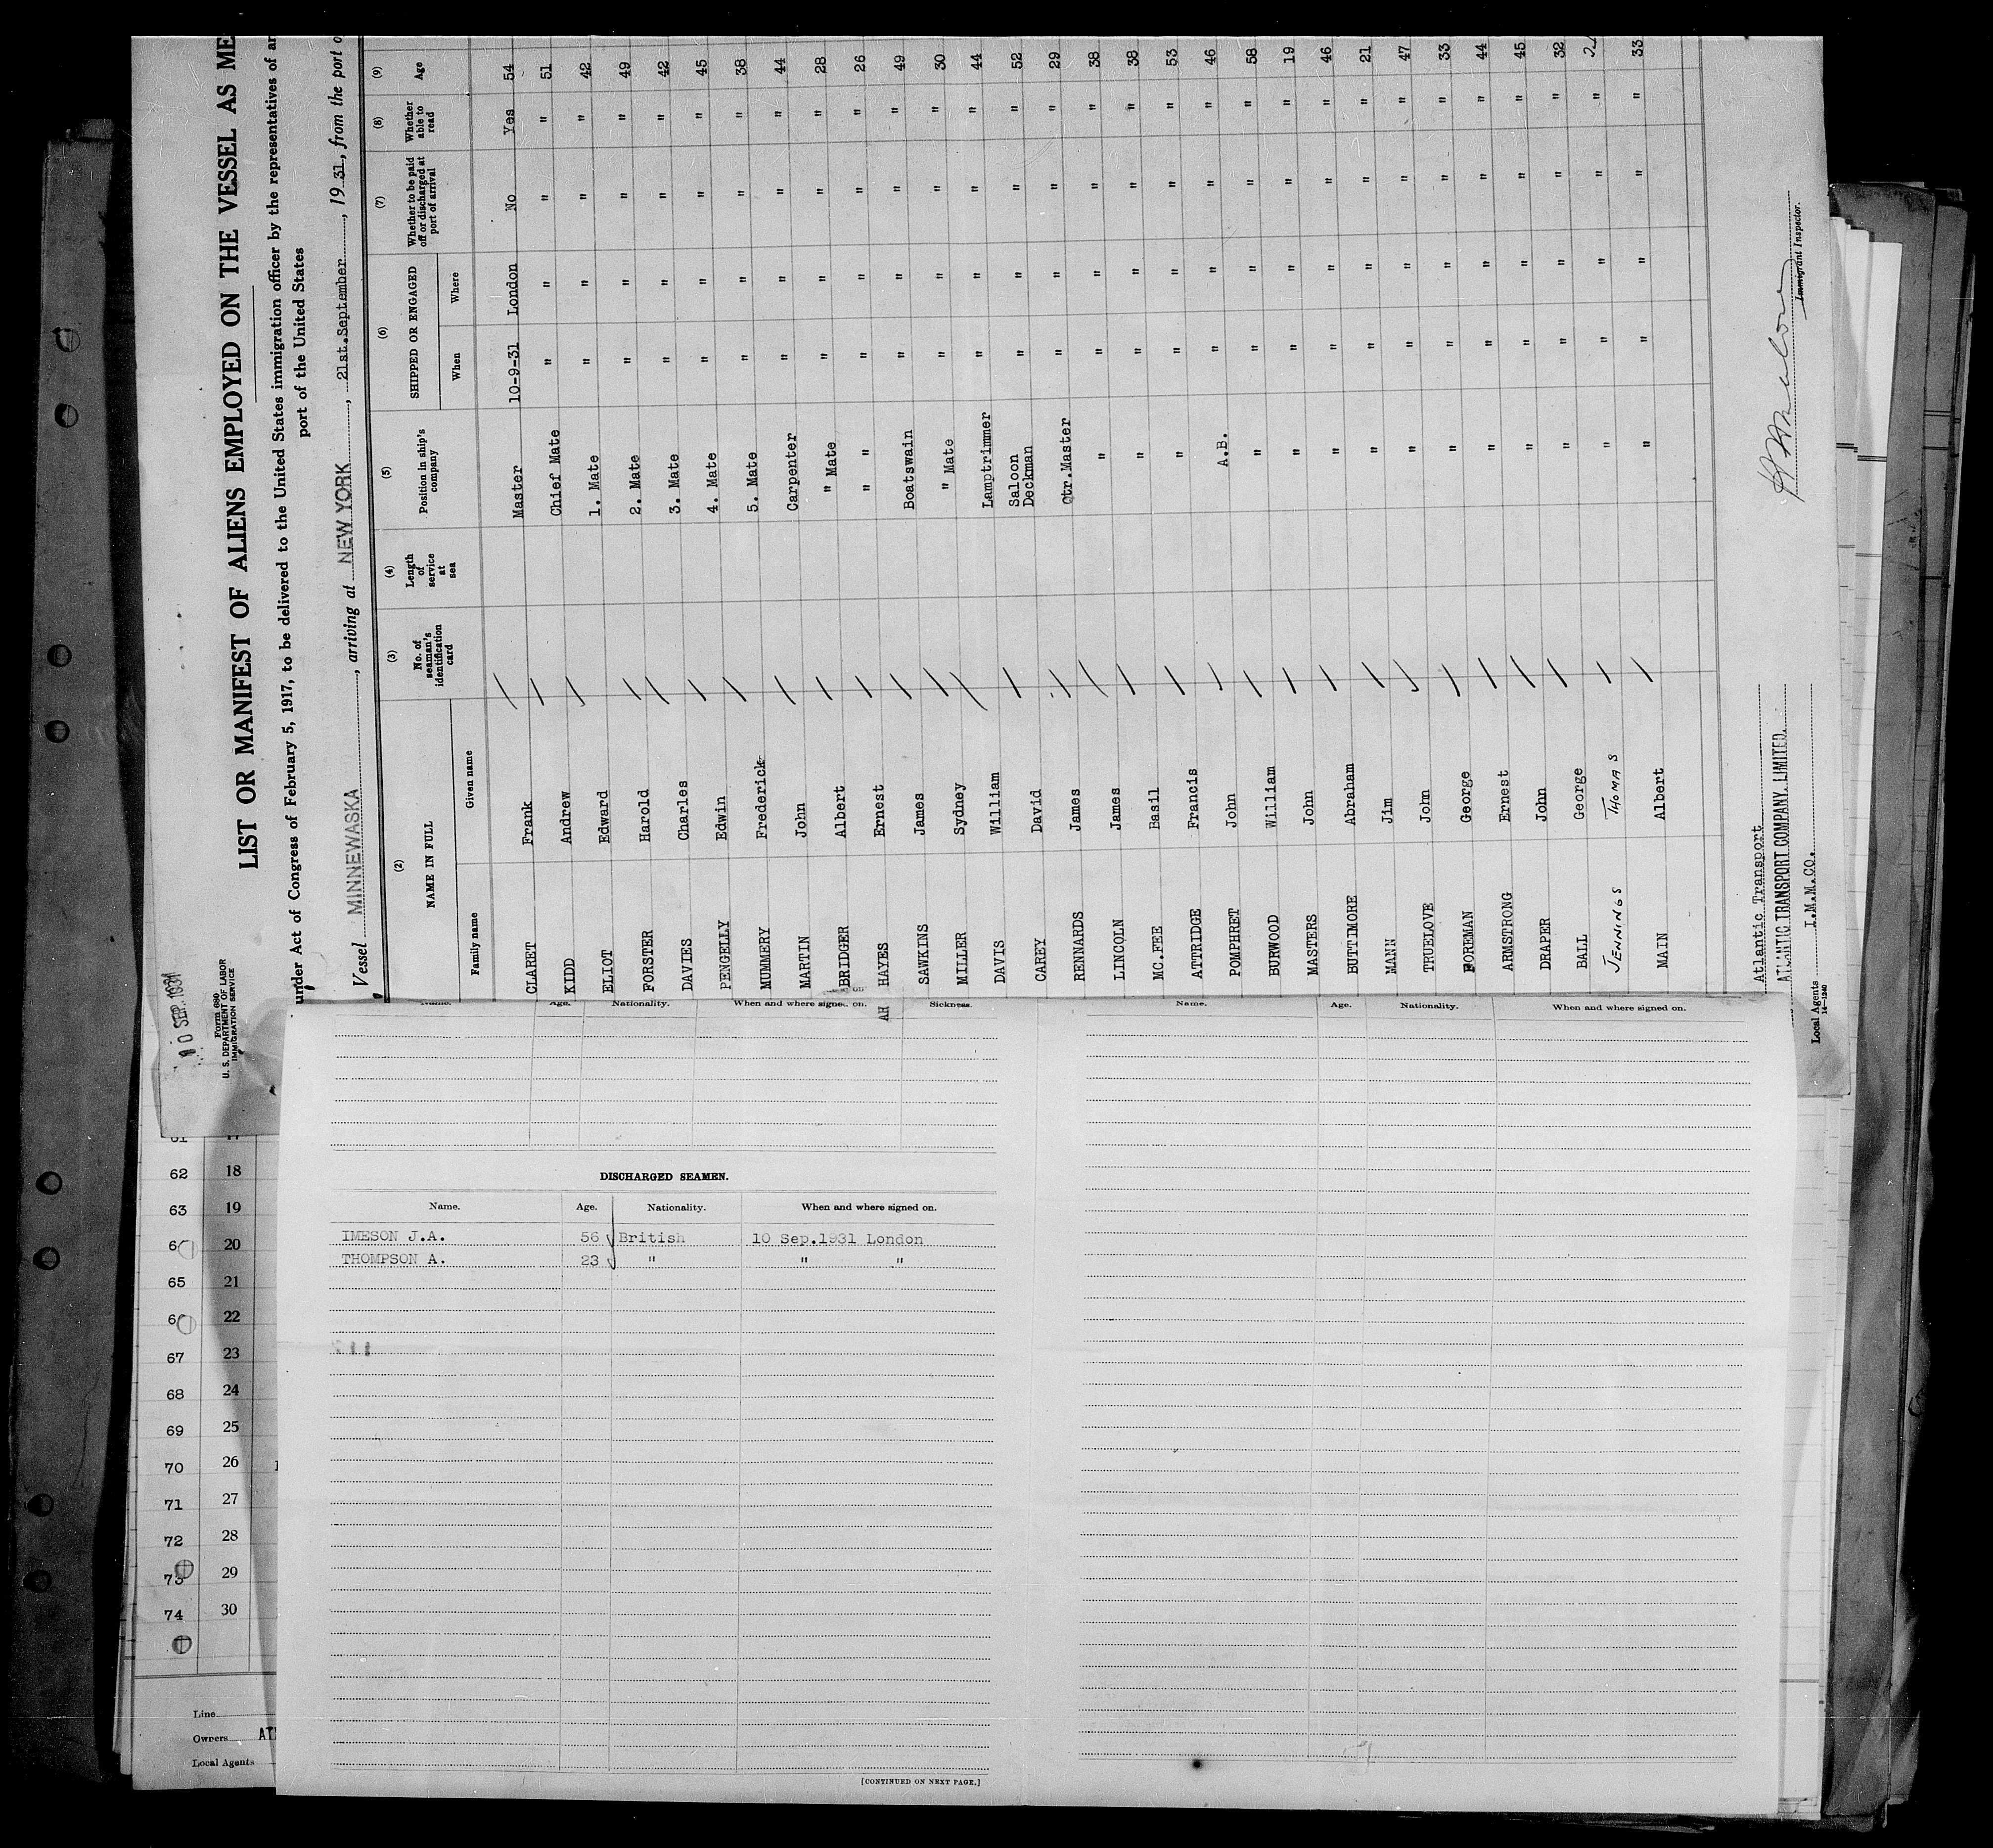 10 SEP. 1931
Form 680
U. S. DEPARTMENT OF LABOR
IMMIGRATION SERVICE
LIST OR MANIFEST OF ALIENS EMPLOYED ON THE VESSEL AS ME
under Act of Congress of February 5, 1917, to be delivered to the United States immigration officer by the representatives of an
port of the United States
Vessel MINNEWASKA, arriving at NEW YORK, 21st.September, 1931, from the port o
(2) (3) (4) (5) (6) (7) (8) (9)
NAME IN FULL No. of seaman's identification card Length of service at sea Position in ship's company SHIPPED OR ENGAGED Whether to be paid off or discharged at port of arrival Whether able to read Age
Family name Given name When Where
CLARET Frank Master 10-9-31 London No Yes 54
KIDD Andrew Chief Mate " " " " 51
ELIOT Edward 1. Mate " " " " 42
FORSTER Harold 2. Mate " " " " 49
DAVIES Charles 3. Mate " " " " 42
PENGELLY Edwin 4. Mate " " " " 45
MUMMERY Frederick 5. Mate " " " " 38
MARTIN John Carpenter " " " " 44
BRIDGER Albert " Mate " " " " 28
AH HAYES Ernest " " " " " " 26
SAWKINS James Boatswain " " " " 49
MILLER Sydney " Mate " " " " 30
DAVIS William Lamptrimmer " " " " 44
CAREY David Saloon Deckman " " " " 52
RENNARDS James Qtr.Master " " " " 29
LINCOLN James " " " " " 38
MC.FEE Basil " " " " " 38
ATTRIDGE Francis " " " " " 53
POMPHRET John A.B. " " " " 46
BURWOOD William " " " " " 58
MASTERS John " " " " " 19
BUTTIMORE Abraham " " " " " 46
MANN Jim " " " " " 21
TRUELOVE John " " " " " 47
FOREMAN George " " " " " 33
ARMSTRONG Ernest " " " " " 44
DRAPER John " " " " " 45
BALL George " " " " " 32
JENNINGS THOMAS " " " " "
MAIN Albert " " " " " 33
Atlantic Transport
ATLANTIC TRANSPORT COMPANY, LIMITED.
Local Agents I.M.M.CO.
14—1240
Immigrant Inspector.
Name. Age. Nationality. When and where signed on. Sickness.
Name. Age. Nationality. When and where signed on.
DISCHARGED SEAMEN.
Name. Age. Nationality. When and where signed on.
IMESON J.A. 56 British 10 Sep.1931 London
THOMPSON A. 23 " " "
[CONTINUED ON NEXT PAGE.]
61 17
62 18
63 19
20
65 21
22
67 23
68 24
69 25
70 26
71 27
72 28
73 29
74 30
Line
Owners AT
Local Agents